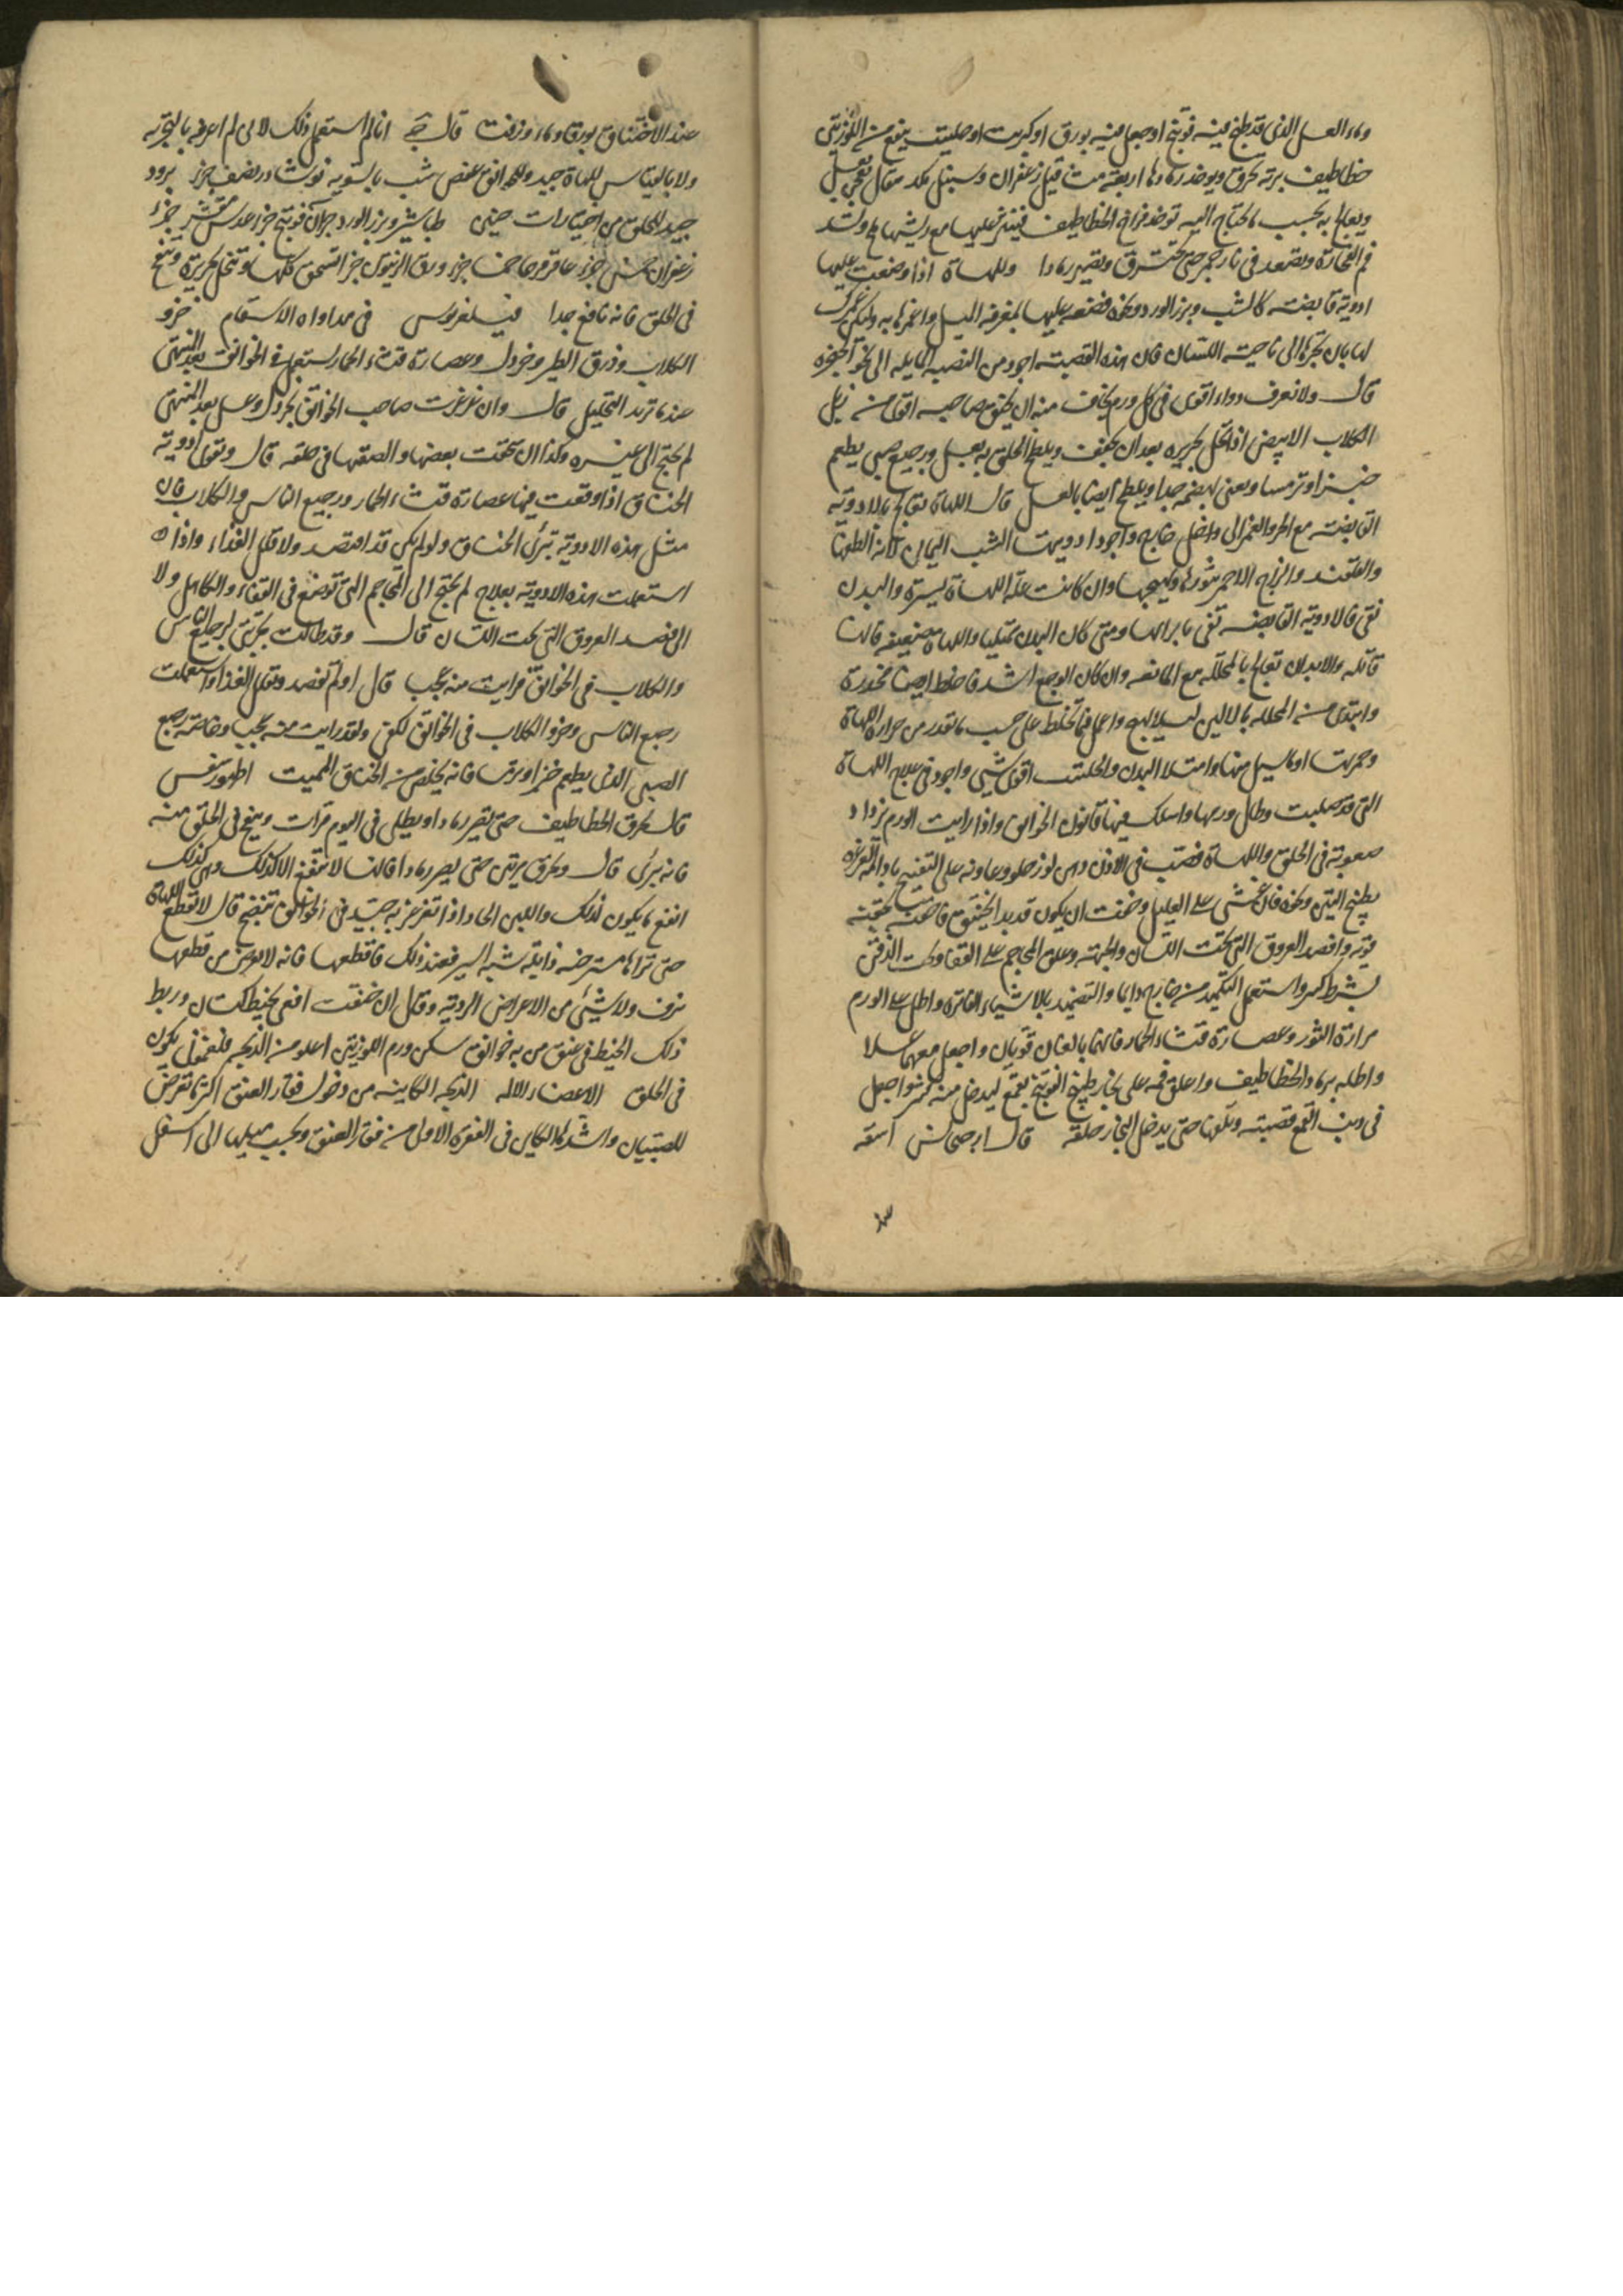 وماء العسل الذي قد طبخ فيه فوتنج او جعل فيه بورق او كبريت او حلتيت ينفع من اللوزتين
خطاطيف برته تحرق ويوخذ رمادها اربعة مثاقيل زعفران وسنبل مثقال يعجن بعسل
ويعالج به بحسب ما يحتاج اليه توخذ فراخ الخطاطيف فينثر عليها مع ريشها ملح ويشد
فم الفخارة وتصعد في نار جمر حتى تحترق وتصير رمادا وللهاة اذا وضعت عليها
ادوية قابضة كالشب وبزر الورد ونحوه فضعه عليها بمغرفة الميل واغمزها به وليكن غمزك
لها بان تجرها الى ناحية اللسان فان هذه القصبة اجود من النصبة المايلة الى نحو الحنجرة
قال ولا نعرف دواء اقوى في كل ورم يخاف منه ان يخنق صاحبه اقوى من زبل
الكلاب الابيض اذا نخل بحريرة بعد ان يجفف ويلطخ الحلق به بعسل ورجيع صبي يطعم
خبزا وترمسا ويعنى بهضمه جدا ويلطخ ايضا بالعسل قال اللهاة تعالج بالادوية
القابضة مع المر والغمز الى داخل خارج واجود ادويتها الشب اليماني لانه الطفها
والقلقند والزاج الاحمر يثورها ويهيجها وان كانت علة اللهاة يسيرة والبدن
نقي فالادوية القابضة تفي بابرائها ومتى كان البدن ممتليا واللهاة ضعيفة فانها
قاتلة والابدان تعالج بالمحللة مع المانعة وان كان الوجع اشد فاخلط ايضا مخدرة
وابتدى من المحللة بالالين ليلا يهيج واعمل فيما تخلط على حسب ما تقدر من حرارة اللهاة
وحمرتها او ما يسيل منها وامتلاء البدن والحلتيت اقوى شيء واجود في علاج اللهاة
التي قد صلبت وطال ورمها واسلك فيها قانون الخوانيق واذا رايت الورم يزداد
صعوبة في الحلق واللهاة فصب في الاذن دهن لوز حلو وعاونه على التفتيح بادامة الغرغرة
بطبيخ التين ونحوه فان غشي على العليل وخفت ان يكون قد بدا يختنق فاحقنه بحقنة
قوية وافصد العروق التي تحت اللسان والجبهة وعلق المحاجم على القفا وتحت الذقن
بشرط كبير واستعمل التكميد من خارج دايما والتضميد بالاشياء الفاترة واطل على الورم
مرارة الثور وعصارة قثاء الحمار فانهما بالغان قويان واجعل معهما عسلا
واطله برماد الخطاطيف واغلق فمه على بخار طبيخ الفوتنج بقمع ليدخل منه واجعل
في ذنب القمع قصبة وتكون حتى يدخل البخار حلقه قال اسقه
عند الاختناق بورقا وماء وزفت قال انا لم استعمل ذلك لاني لم اعرفه بالتجربة
ولا بالقياس للهاة جيد وللخوانيق عفص شب بالسوية نوشادر نصف جزء برود
جيد للحلق من اختيارات حنين طباشير وبزر الورد جزآن فوتنج جزء عدس مقشر جزء
زعفران خمس جزء عاقرقرحا جزء ورق الزيتون جزء تسحق كلها وتنخل بحريرة وينفخ
في الحلق فانه نافع جدا فيلغريوس في مداواة الاسقام خرو
الكلاب وذرق الطير وخردل وعصارة قثاء الحمار يستعمل في الخوانيق بعد المنتهى
عندما تريد التحليل قال وان غرغرت صاحب الخوانيق بخردل وعسل بعد المنتهى
لم يحتج الى غيره وكذا ان سحقت بعضها والصقتها في حلقه قال وتقوى ادوية
الخناق اذا وقعت فيها عصارة قثاء الحمار ورجيع الناس والكلاب فان
مثل هذه الادوية تبرئ الخناق ولو لم يكن قد افتصد ولا قلل الغذاء واذا
استعملت هذه الادوية بعلاج لم يحتج الى المحاجم التي توضع في القفا والكاهل ولا
الى فصد العروق التي تحت اللسان قال وقد طالت تجربتي لرجيع الناس
والكلاب في الخوانيق فرايت منه عجب قال ولم تفصد وتقلل الغذا واستعملت
رجيع الناس وخرو الكلاب في الخوانيق لكفى ولقد رايت منه عجبا وخاصة رجيع
الصبي الذي يطعم خبزا وترمسا فانه يخلص من الخناق المميت اطهورسفس
قال تحرق الخطاطيف حتى تصير رمادا ويطلى في اليوم مرات وينفخ في الحلق منه
فانه يبرئ قال وتحرق مرتين حتى يصير رمادا فانها لا تنفع الا كذلك وهي كذلك
انفع ما يكون لذلك واللبن الحار اذا تغرغر به جيد في الخوانيق تنضج قال لا تقطع اللهاة
حتى تراها مسترخية ذابلة شبه السير فعند ذلك فاقطعها فانه لا يعرض من قطعها
نزف ولا شيء من الاعراض الردية وقال ان خنقت افعى بخيط كتان وربط
ذلك الخيط في عنق من به خوانيق سكن ورم اللوزتين
في الحلق الاعضاء الالمة الذبحة الكاينة من دخول فقار العنق اكثر ما تعرض
للصبيان واشدها الكاين في الفقرة الاولى من فقار العنق وبحسب ميلها الى اسفل